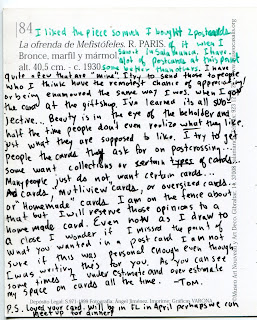 84 I liked the piece so much I bought 2 postcards
La ofrenda de Mefistófeles. R. PARIS. of it when I
Bronce, marfil y mármol saw it in Salamanca. I have
alt. 40,5 cm. - c. 1930. alot of postcards at this point
some better than others. I have
quite a few that are "mine" I try to send those to people
who I think have the remotest chance of appreciating/
or being enamoured the same way I was when I got
the card at the giftshop. I've learned its all subj-
jective... Beauty is in the eye of the beholder and
half the time people don't even realize what they like.
just what they are supposed to like. I try to get
people the cards they ask for on postcrossing.
some want collections or certain types of cards.
Many people just do not want certain cards..
Ad cards, mutliview cards, or oversized cards.
or "Homemade" cards. I am on the fence about
that but I will reserve those opinions to a
home made card. Even now as I draw to
a close I wonder if I missed the point of
what you wanted in a post card I am not
sure if this was personal enough even though
I was writing the's for you. As you can see
some times I under estimate and over estimate
my space on cards all the time. -Tom.
Depósito Legal: S.971-1998 Fotografía: Ángel Jiménez. Imprime: Gráficas VARONA
P.S. Loved your card will be in FL in April perhaps we can
meet up for dinner?